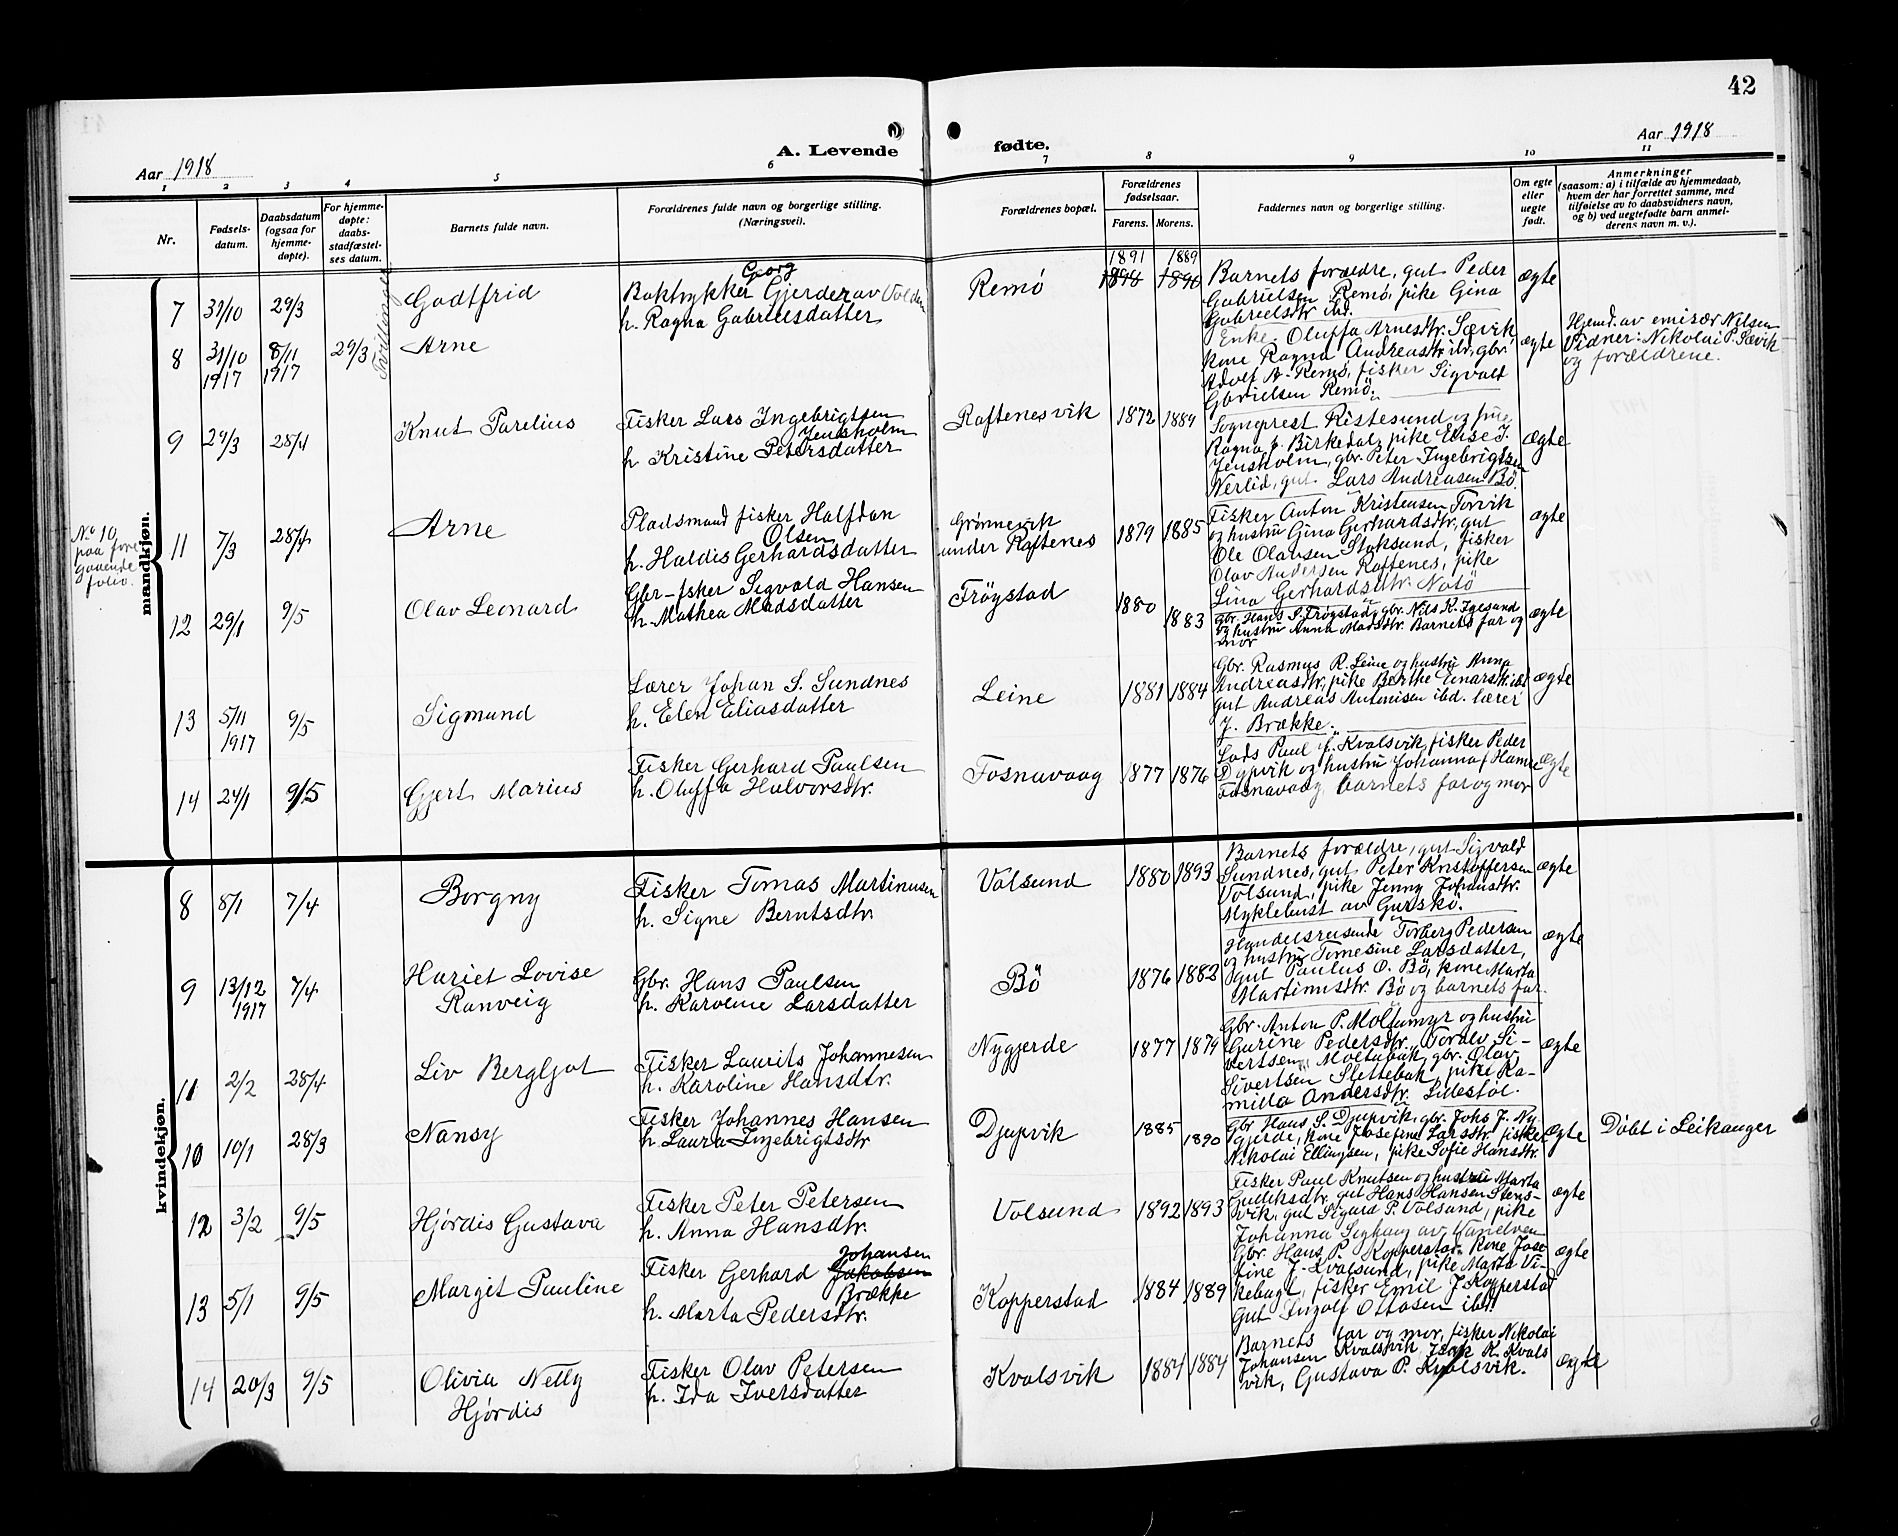 42
Aar 1918
A. Levende
fødte.
Aar 1918
1 2 3 4 5 6 7 8 9 10 11
Nr.
Fødsels-
datum.
Daabsdatum
(ogsaa for
hjemme-
døpte).
For hjemme-
døpte:
daabs-
stadfæstel-
ses datum.
Barnets fulde navn.
Forældrenes fulde navn og borgerlige stilling.
(Næringsvei).
Forældrenes bopæl.
Forældrenes
fødselsaar.
Farens. Morens.
Faddernes navn og borgerlige stilling.
Om egte
eller
uegte
født.
Anmerkninger
(saasom: a) i tilfælde av hjemmedaab,
hvem der har forrettet samme, med
tilføielse av to daabsvidners navn,
og b) ved uegtefødte barn anmel-
derens navn m. v.).
mandkjøn.
Tvillinger
7 31/10 29/3 Godtfrid
Georg
Boktrykker Gjerder av Volden
h. Ragna Gabrielsdatter
Remö
1891 1889
1890
Barnets forældre, gut Peder
Gabrielsen Remö, pike Gina
Gabrielsdtr. ibd.
ægte
8 31/10 1917 8/11 1917 29/3 Arne
Enke Oluffa Arnesdtr. Sævik
kone Ragna Andreasdtr. ibd, gbr.
Adolf A. Remö, fisker Sigvald
Gbrielsen Remö.
ægte
Hjemd. av emisær Nilsen
Vidner: Nikolai P. Sævik
og forældrene.
9 27/3 28/4 Knut Parelius
Fisker Lars Ingebrigtsen
Jensholm
h. Kristine Petersdatter
Raftenesvik
1872 1889
Sogneprest Ristesund og frue
Ragna f. Birkedal, pike Elise J.
Jensholm, gbr. Peter Ingebrigtsen
Nerlid, gut Lars Andreasen Bö.
ægte
No 10
paa fore
gaaende
folio.
11 7/3 28/4 Arne
Pladsmand fisker Halfdan
Olsen
h. Haldis Gerhardsdatter
Grönnevik
under Raftenes
1879 1885
Fisker Anton Kristensen Torvik
og hustru Gina Gerhardsdtr, gut
Ole Olausen Stoksund, fisker
Olav Andersen Raftenes, pike
Lina Gerhardsdtr. Notö
ægte
12 29/1 9/5 Olav Leonard
Gbr-fsker Sigvald Hansen
h. Mathea Madsdatter
Fröystad
1880 1883
gbr. Hans S. Fröystad, gbr. Nils K. Igesund
og hustru Anna Madsdtr. Barnets far og
mor
ægte
13 5/11 1917 9/5 Sigmund
Lærer Johan S. Sundnes
h. Elen Eliasdatter
Leine
1881 1884
Gbr. Rasmus R. Leine og hustru Anna
Andreasdtr, pike Berthe Einarsk ibd
gut Andreas Antonisen ibd. lærer
J. Brække.
ægte
14 24/1 9/5 Gjert Marius
Fisker Gerhard Paulsen
h. Oluffa Halvorsdtr.
Fosnavaag
1877 1876
Lods Paul J. Kvalsvik, fisker Peder
Djupvik og hustru Johanna f Hamre
Fosnavaag, barnets far og mor
ægte
kvindekjøn.
8 8/1 7/4 Borgny
Fisker Tomas Martinusen
h. Signe Berntsdtr.
Volsund
1880 1893
Barnets forældre, gut Sigvald
Sundnes, gut Peter Kristoffersen
Volsund, pike Jenny Johansdtr.
Myklebust av Gurskö.
ægte
9 13/12 1917 7/4 Hariet Lovise
Ranveig
Gbr. Hans Paulsen
h. Karoline Larsdatter
Bö
1876 1882
Handelsreisende Torberg Pedersen
og hustru Tomesine Larsdatter,
gut Paulus O. Bö, kone Marta
Martinusdtr. Bö og barnets far.
ægte
11 2/2 28/4 Liv Bergljot
Fisker Laurits Johannesen
h. Karoline Hansdtr.
Nygjerde
1877 1879
Gbr. Anton P. Moltumyr og hustru
Gurine Pedersdtr. Toralv Si-
vertsen Moltubak, gbr. Olav
Sivertsen Slettebak, pike Ka-
milla Andersdtr. Lillestöl.
ægte
10 10/1 28/3 Nansy
Fisker Johannes Hansen
h. Laura Ingebrigtsdtr
Djupvik
1885 1890
Gbr Hans S. Djupvik, gbr. Johs J. Ny-
gjerde, kone Josefine Larsdtr. fisker
Nikolai Ellingsen, pike Sofie Hansdtr.
ægte
Döbt i Leikanger
12 3/2 9/5 Hjördis Gustava
Fisker Peter Petersen
h. Anna Hansdtr.
Volsund
1892 1893
Fisker Paul Knutsen og hustru Marta
gut Hans Hansen Stens-
vik, gut Sigurd P. Volsund, pike
Johanna av Vanelven
ægte
13 5/1 9/5 Margit Pauline
Johansen
Fisker Gerhard Jakobsen
Brække
h. Marta Pedersdtr.
Kopperstad
1884 1889
Gbr. Hans P. Kopperstad, kone Jose
fine J. Kvalsund, pike Marta Vi-
kebugt, fisker Emil J. Kopperstad
Gut Ingolf Ottosen ibd.
ægte
14 20/3 9/5 Olivia Nelly
Hjørdis
Fisker Olav Petersen
h. Ida Iversdatter
Kvalsvik
1884 1884
Barnets far og mor, fisker Nikolai
Johansen Kvalsvik, K. Kvals
vik, Gustava P. Kvalsvik.
ægte